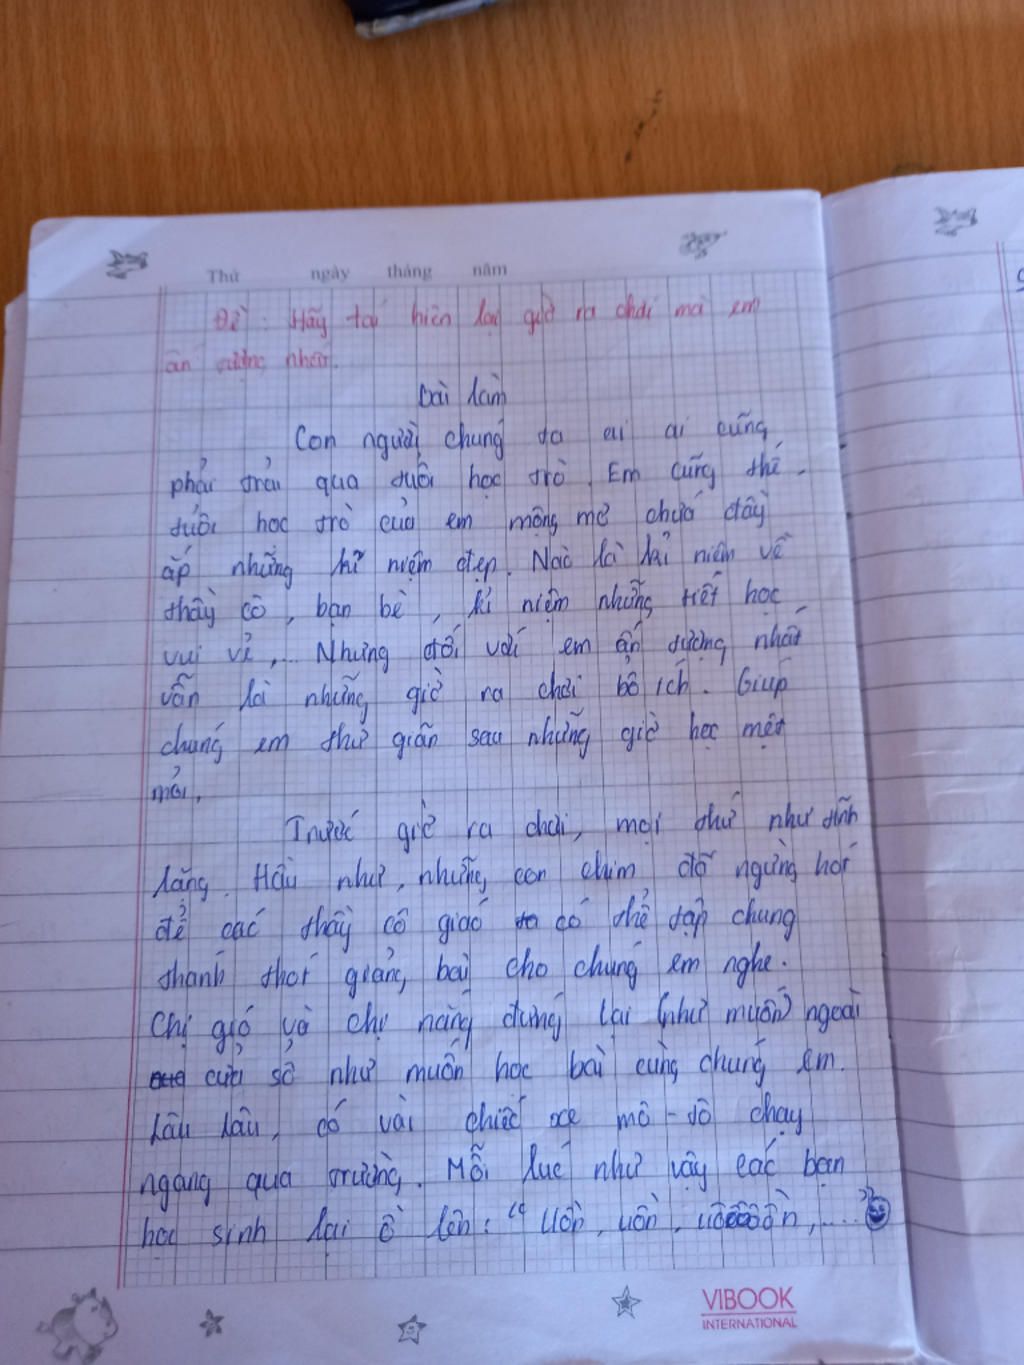 Thứ ngày tháng năm
Đề: Hãy tái hiện lại giờ ra chơi mà em
ấn tượng nhất.
Bài làm
Con người chúng ta ai ai cũng
phải trải qua tuổi học trò. Em cũng thế.
tuổi học trò của em mộng mơ chứa đầy
ắp những kỉ niệm đẹp. Nào là kỉ niệm về
thầy cô, bạn bè, kỉ niệm những tiết học
vui vẻ,... Nhưng đối với em ấn tượng nhất
vẫn là những giờ ra chơi bổ ích. Giúp
chúng em thư giãn sau những giờ học mệt
mỏi.
Trước giờ ra chơi, mọi thứ như tĩnh
lặng. Hầu như, những con chim đã ngừng hót
để các thầy cô giáo có thể tập chung
thánh thót giảng bài cho chúng em nghe.
Chị gió và chị nắng đứng lại (như muốn) ngoài
cửa sổ như muốn học bài cùng chúng em.
Lâu lâu, có vài chiếc xe mô-tô chạy
ngang qua trường. Mỗi lúc như vậy các bạn
học sinh lại ồ lên: "Uồn, uồn, uôôôôồn,....."
VIBOOK
INTERNATIONAL